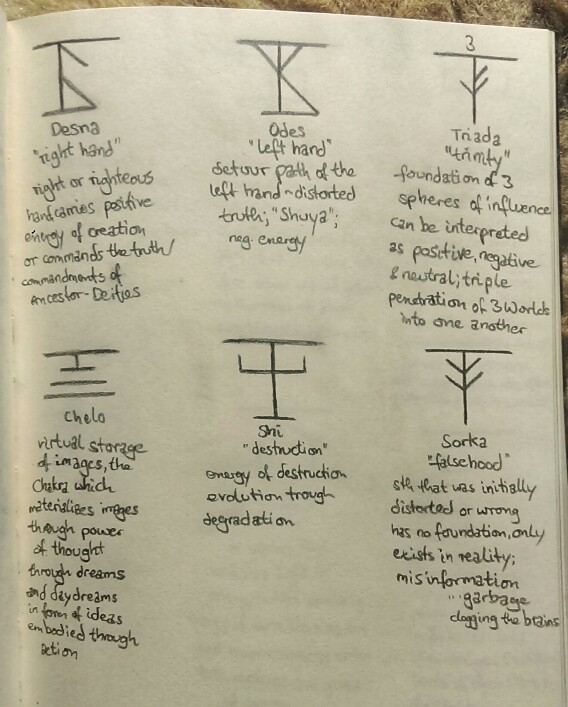 Desna
"right hand"
right or righteous
hand carries positive
energy of creation
or commands the truth/
commandments of
Ancestor-Deities
Odes
"left hand"
detour path of the
left hand ~ distorted
truth; "Shuya";
neg. energy
3
Triada
"trinity"
foundation of 3
spheres of influence
can be interpreted
as positive, negative
& neutral; triple
penetration of 3 Worlds
into one another
Chelo
virtual storage
of images, the
Chakra which
materializes images
through power
of thought
through dreams
and daydreams
in form of ideas
embodied through
action
Shi
"destruction"
energy of destruction
evolution trough
degradation
Sorka
"falsehood"
sth that was initially
distorted or wrong
has no foundation, only
exists in reality;
misinformation
... garbage
clogging the brains